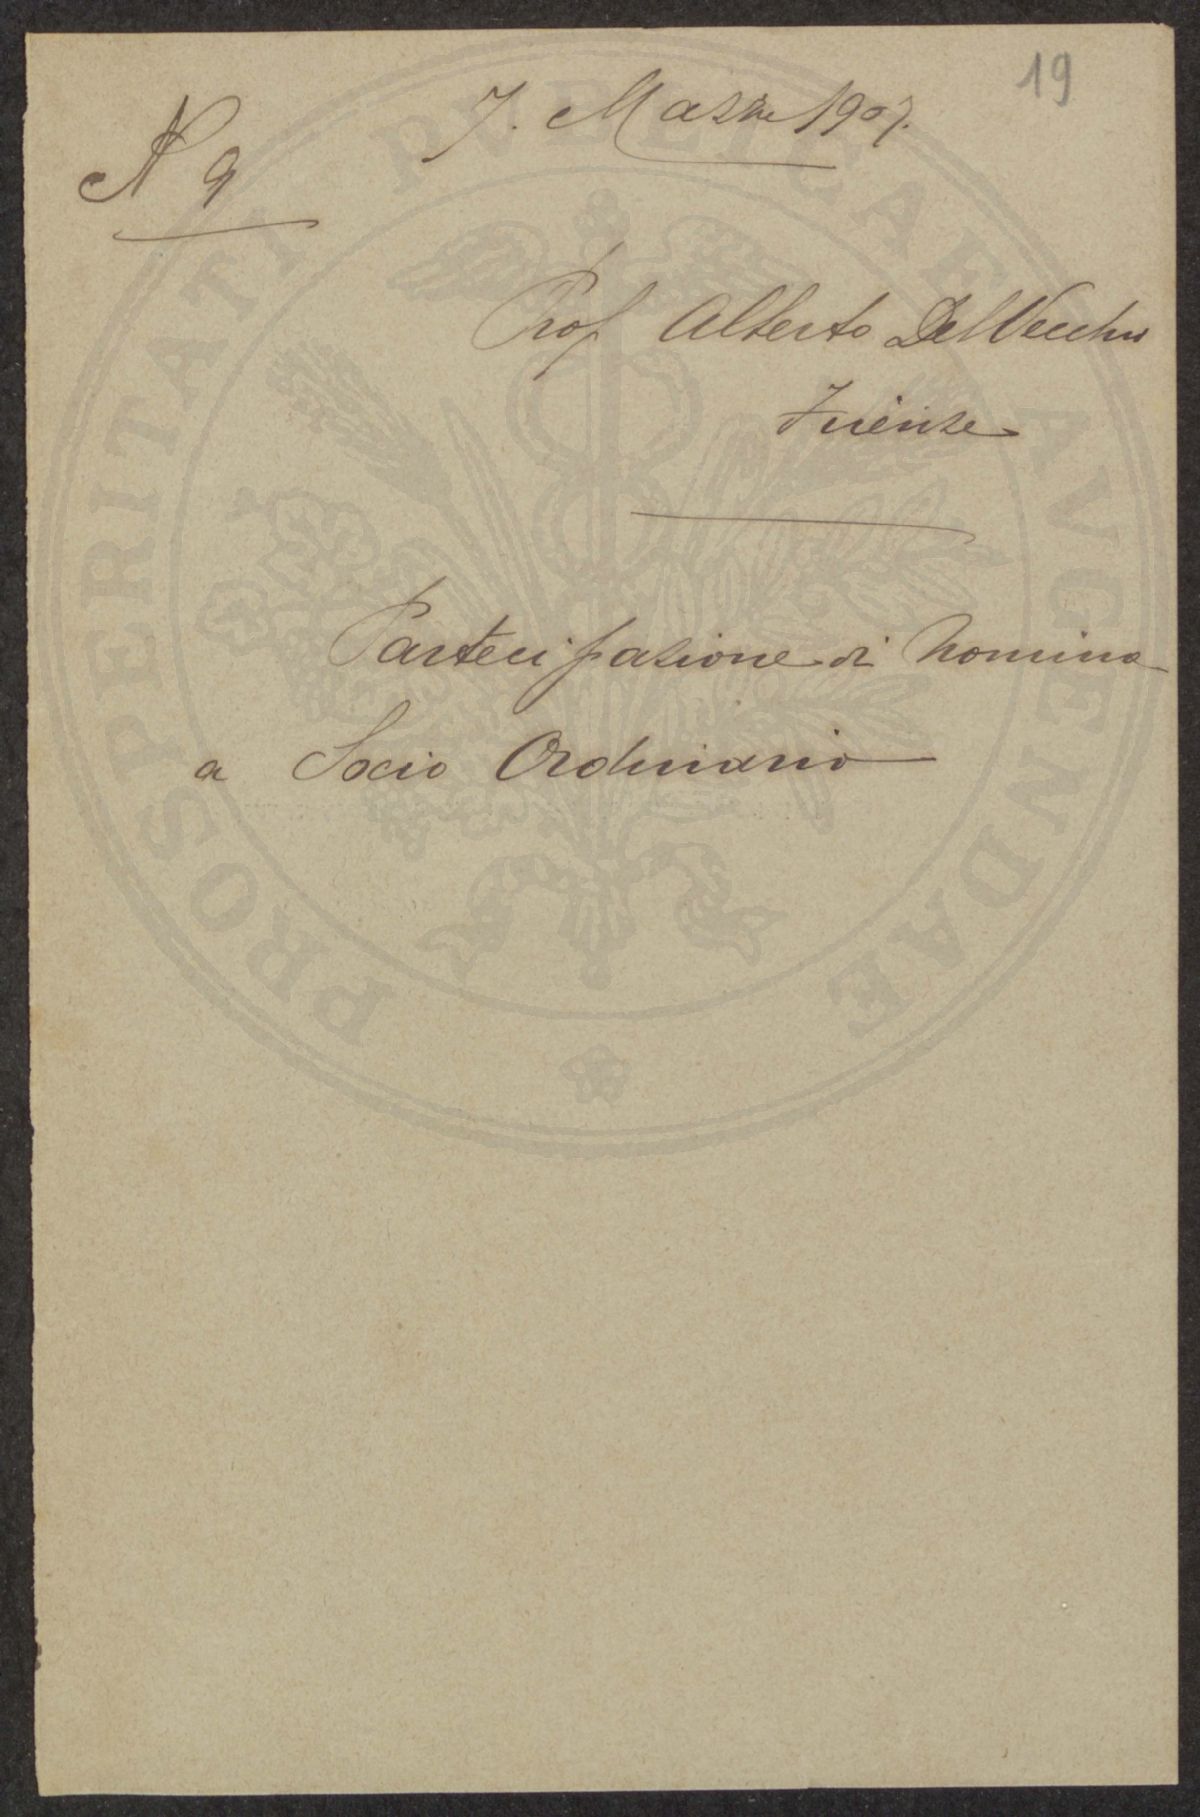 19
7. Marzo 1907.
N 9
Prof Alberto Del Vecchio
Firenze
Partecipazione di Nomina
a Socio Ordinario
PROSPERITATI PVBLICAE AVGENDAE